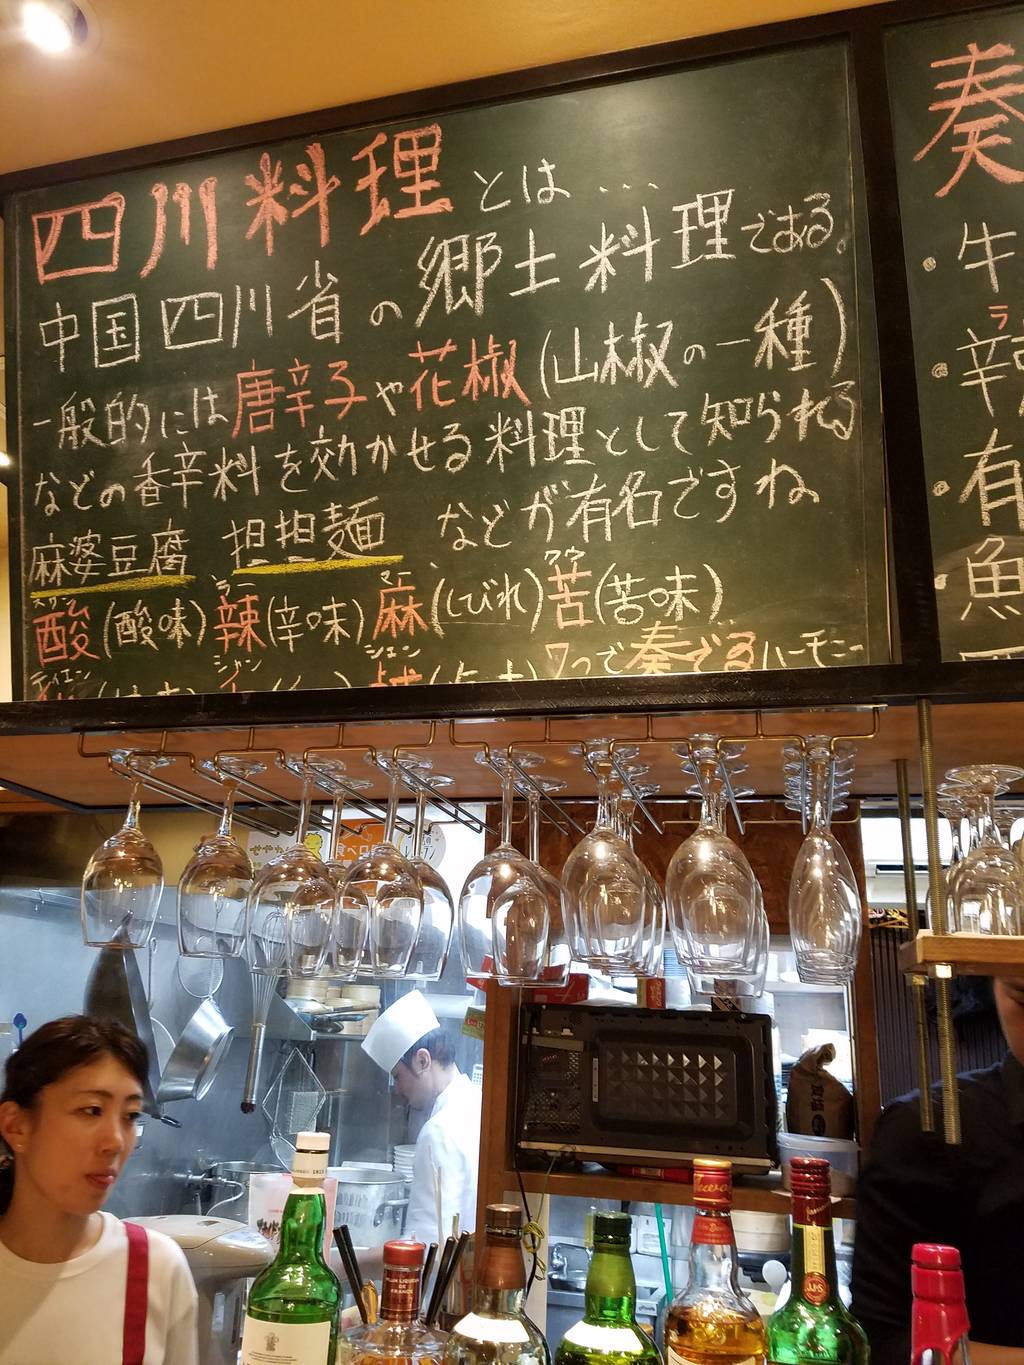 四川料理とは…
中国四川省の郷土料理である。
一般的には唐辛子や花椒(山椒の一種)
などの香辛料を効かせる料理として知られる
麻婆豆腐 担担麺 などが有名ですね
スワン ラー マー クウ
酸(酸味)辣(辛味)麻(しびれ)苦(苦味)
ティエン シャン シェン
7つで奏でるハーモニー
奏
・牛
ラ
・辛
・有
・魚